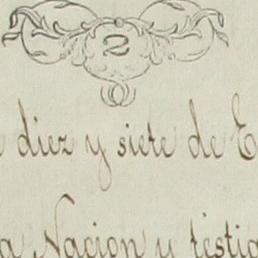 2
diez y siete de
Nacion y testig